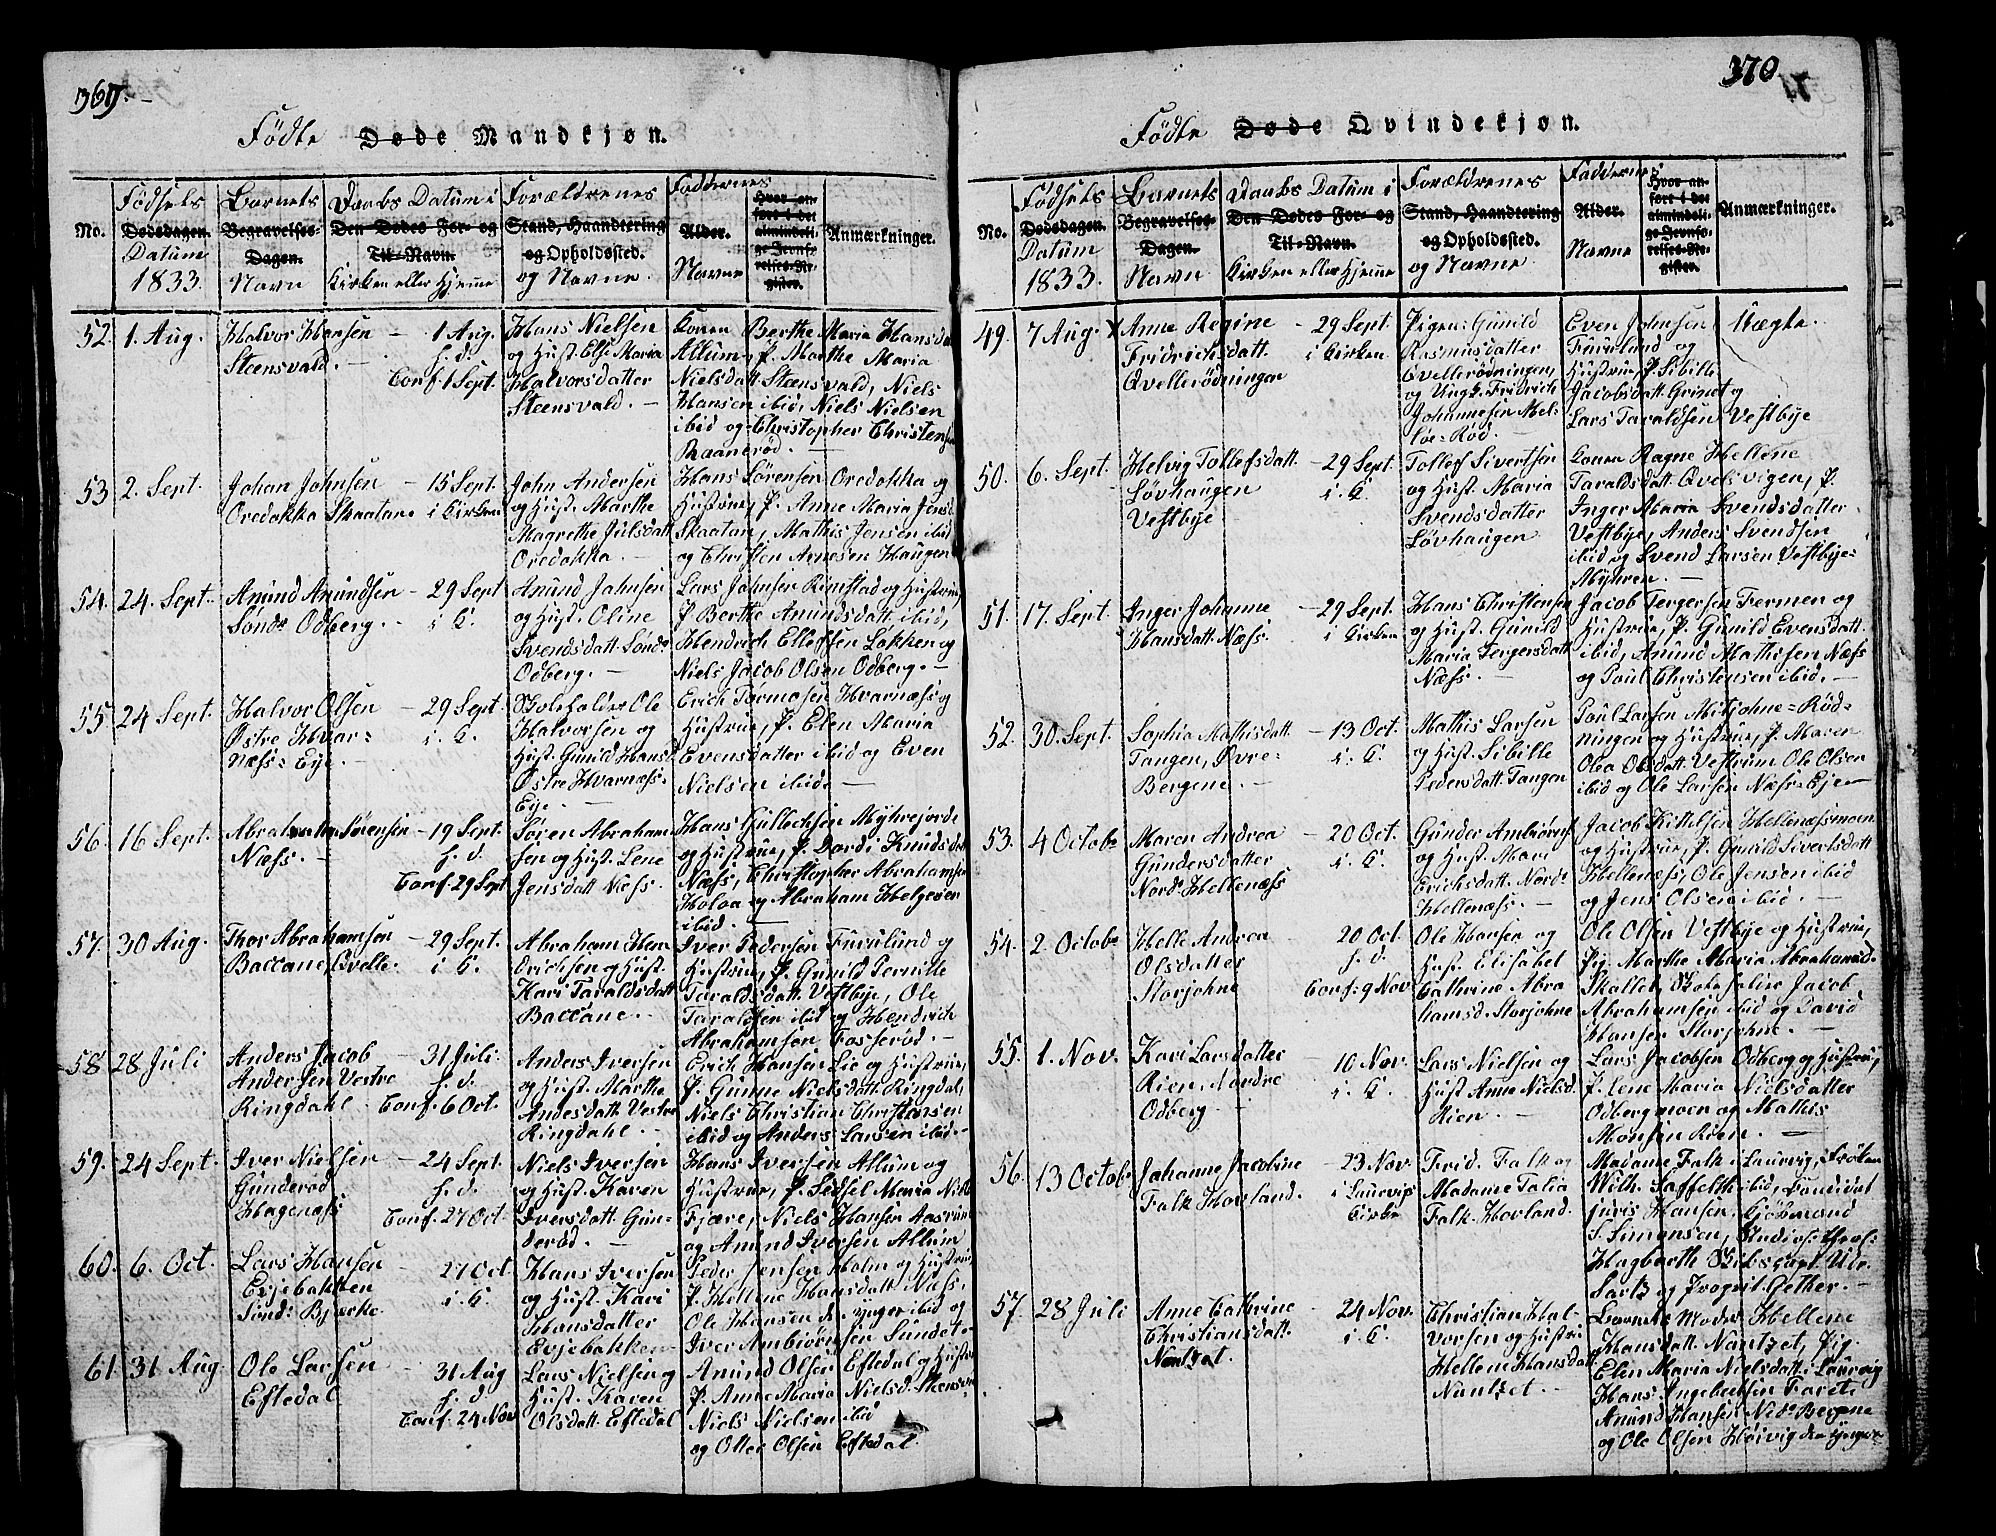 369.
Födte Døde Mandkjøn.
No.
Födsels
Dødsdagen.
Datum
1833.
Barnets
Begravelses-
Dagen.
Navn
Daabs Datum i
Den Dødes For- og
Til-Navn.
Kirken eller Hjemme
Forældrenes
Stand, Haandtering
og Opholdssted.
og Navne.
Faddernes
Alder.
Navne
Hvor an-
ført i det
almindeli-
ge Jevnfø-
relses-Re-
gister.
Anmærkninger.
52. 1. Aug.
Halvor Hansen
Steensvald. -
1 Aug.
h. d.
Conf. 1 Sept.
Hans Nielsen
og Hust. Else Maria
Halvorsdatter
Steensvald. -
Konen Berthe Maria Hansd.
Allum, P. Marthe Maria
Nielsdatt. Steensvald, Niels
Hansen ibid, Niels Nielsen
ibid og Christopher Christensen
Raanerød. -
53 2. Sept.
Johan Johnsen
Oredokka Skaatan
- 15 Sept.
i Kirken
John Andersen
og Hust. Marthe
Magrethe Julsdatt.
Oredokka. -
Hans Sörensen Oredokka og
Hustrue, P. Anne Maria Jensd.
Skaatan, Mathis Jensen ibid
og Christen Arnesen Haugen
54. 24. Sept.
Amund Amundsen
Sondr Odberg. -
- 29 Sept
i K.
Amund Johnsen
og Hust. Oline
Svendsdatt. Sönd.
Odberg. -
Lars Johnsen Rimstad og Hustrue,
P. Berthe Amundsdatt. ibid,
Hendrich Ellefsen Løkken og
Niels Jacob Olsen Odberg. -
55 24 Sept.
Halvor Olsen
Østre Hvar-
næss: Eye. -
- 29 Sept
i. K.
Skoleholder Ole
Halvorsen og
Hust. Gunild Hansd.
Østre Hvarnæss-
Eye. -
Erich Tormosen Hvarnæss og
Hustrue, P. Elen Maria
Evensdatter ibid og Even
Nielsen ibid. -
56. 16 Sept.
Abraham Sörensen
Næss. -
- 19 Sept.
h. d.
Conf. 29 Sept
Sören Abraham
sen og Hust. Lene
Jensdatt. Næss. -
Hans Gullichsen Myhrejorde
og Hustrue, P. Dordi Knudsdatt.
Næss, Christopher Abrahamsen
Holva og Abraham Helgesen
ibid. -
57. 30 Aug.
Thor Abrahamsen
Baccane, Qvelle.
- 29 Sept.
i K.
Abraham Hen
drichsen og Hust.
Kari Taraldsdatt.
Baccane. -
Iver Pedersen Furulund og
Hustrue, P. Gunild Pernille
Taraldsdatt. Vestbye, Ole
Taraldsen ibid og Hendrich
Abrahamsen Fosserød. -
58 28 Juli
Anders Jacob
Andersen Vestre
Ringdahl. -
- 31 Juli.
h. d.
Conf. 6 Oct.
Anders Iversen
og Hust. Marthe
Andesdatt. Vestre
Ringdahl. -
Erich Hansen Lie og Hustrue,
P. Gunne Nielsdatt. Ringdal,
Niels Christian Christensen
ibid og Anders Larsen ibid. -
59. 24 Sept.
Iver Nielsen
Gunderød
Hagenæss
- 24 Sept.
h. d.
Conf. 27 Oct.
Niels Iversen
og Hust. Karen
Iversdatt. Gun-
derød. -
Hans Iversen Allum og
Hustrue, P. Sidsel Maria Niels
Fjære, Niels Hansen Aasrum
og Amund Iversen Allum
60. 6. Oct.
Lars Hansen
Evjebakken
Sönd. Bjerke
27 Oct
i. K.
Hans Iversen
og Hust. Kari
Hansdatter
Evjebakken
Peder Jensen Holm og Hustrue,
P. Hellene Hansdatt. Næss,
Ole Hansen d. yngre ibid og
Iver Ambiörnsen Sundet. -
61. 31 Aug
Ole Larsen
Eftedal
31 Aug
h. d.
Conf. 24 Nov
Lars Nielsen og
Hust. Karen
Olsdatt. Eftedal
Amund Olsen Eftedal og Hustrue
P. Anne Maria Nielsd. Steensv.
Niels Nielsen ibid
og Otter Olsen Eftedal.
370
Födte Døde Qvindekjøn.
No.
Födsels
Dødsdagen.
Datum
1833.
Barnets
Begravelses-
Dagen.
Navn
Daabs Datum i
Den Dødes For- og
Til-Navn.
Kirken eller Hjemme
Forældrenes
Stand, Haandtering
og Opholdssted.
og Navne
Faddernes
Alder.
Navne
Hvor an-
ført i det
almindeli-
ge Jevnfø-
relses-Re-
gister.
Anmærkninger.
49. 7 Aug.
Anne Regine
Fridrichsdatt.
Qvellerödningen
- 29 Sept.
i Kirken
Pigen: Gunild
Rasmusdatter
Qvellerødningen,
og Ungk. Fridrich
Johannesen Mel-
løe-Rød. -
Even Johnsen
Furulund og
Hustrue, P. Sibille
Jacobsdatt. Grinet og
Lars Taraldsen Vestbye
Uægte.
50. 6. Sept.
Helvig Tollefsdatt.
Lövhaugen
Vestbye
- 29 Sept.
i. K.
Tollef Sivertsen
og Hust. Maria
Svendsdatter
Lövhaugen
Konen Ragne Hellene
Taraldsdatt. Qvelsvigen, P.
Inger Maria Svendsdatter
Vestbye, Anders Svendsen
ibid og Svend Larsen Vestbye-
Myhren. -
51. 17. Sept.
Inger Johanne
Hansdatt. Næss.
- 29 Sept.
i Kirken
Hans Christensen
og Hust. Gunild
Maria Tergersdatt.
Næss. -
Jacob Tergersen Tvermen og
Hustrue, P. Gunild Evensdatt.
ibid, Amund Mathisen Næss
og Poul Christensen ibid. -
52. 30. Sept.
Sophia Mathisdatt.
Tangen, Øvre-
Bergene. -
- 13 Oct.
i. K.
Mathis Larsen
og Hust. Sibille
Pedersdatt. Tangen
Poul Larsen Mitjohne-Röd-
ningen og Hustrue, P. Maren
Olea Olsdatt. Vestrum Ole Olsen
ibid og Ole Larsen Næss-Eje -
53. 4 Octobr
Maren Andrea
Gundersdatter
Nord. Hellenæss
- 20 Oct.
i. K.
Gunder Ambiörns.
og Hust. Mari
Erichsdatt. Nord.
Hellenæss. -
Jacob Kittilsen Hellenæssmoen
og Hustrue, P. Gunild Sivertsdatt.
Hellenæss, Ole Jensen ibid
og Jens Olsen ibid. -
54. 2. Octobr
Helle Andrea
Olsdatter
Storjohne
20 Oct.
h. d.
Conf: 9 Nov
Ole Hansen og
Hust. Elisabet
Cathrine Abra
hamsd. Storjohne
Ole Olsen Vestbye og Hustrue,
Pig. Marthe Maria Abrahamsd.
Skallet, Skoleholder Jacob
Abrahamsen ibid og David
Hansen Storjohne. -
55. 1. Nov.
Kari Larsdatter
Rien, Nordre
Odberg -
- 10 Nov.
i. K.
Lars Nielsen og
Hust Anne Nielsd.
Rien. -
Lars Jacobsen Odberg og Hustrue,
P. Lene Maria Nielsdatter
Odbergmoen og Mathis
Monsen Rien. -
56. 13 Octobr
Johanne Jacobine
Falk Hovland.
- 23 Nov.
i Laurvigs
Kirke
Frid. Falk og
Madame Talia
Falk. Hovland.
Madame Falk i Laurvig, Frøken
Wilh. Saffelth ibid, Candidat
juris Hansen, Kjöbmand
S. Simonsen,
Hagbarth Skibscapt. Ulr.
Sartz og Proprit. Gether. -
57. 28 Juli
Anne Cathrine
Christiansdatt.
Nantzet.
24 Nov.
i. K.
Christian Hal
vorsen og Hustru
Hellene Hansdatt.
Nantzet. -
Barnets Moder Hellene
Hansdatt. Nantzet, Pig.
Elen Maria Nielsdatt. i Laurvig
Hans Ingebretsen Farets
Amund Hansen Nedr Bergene
og Ole Olsen Høivig den yngere